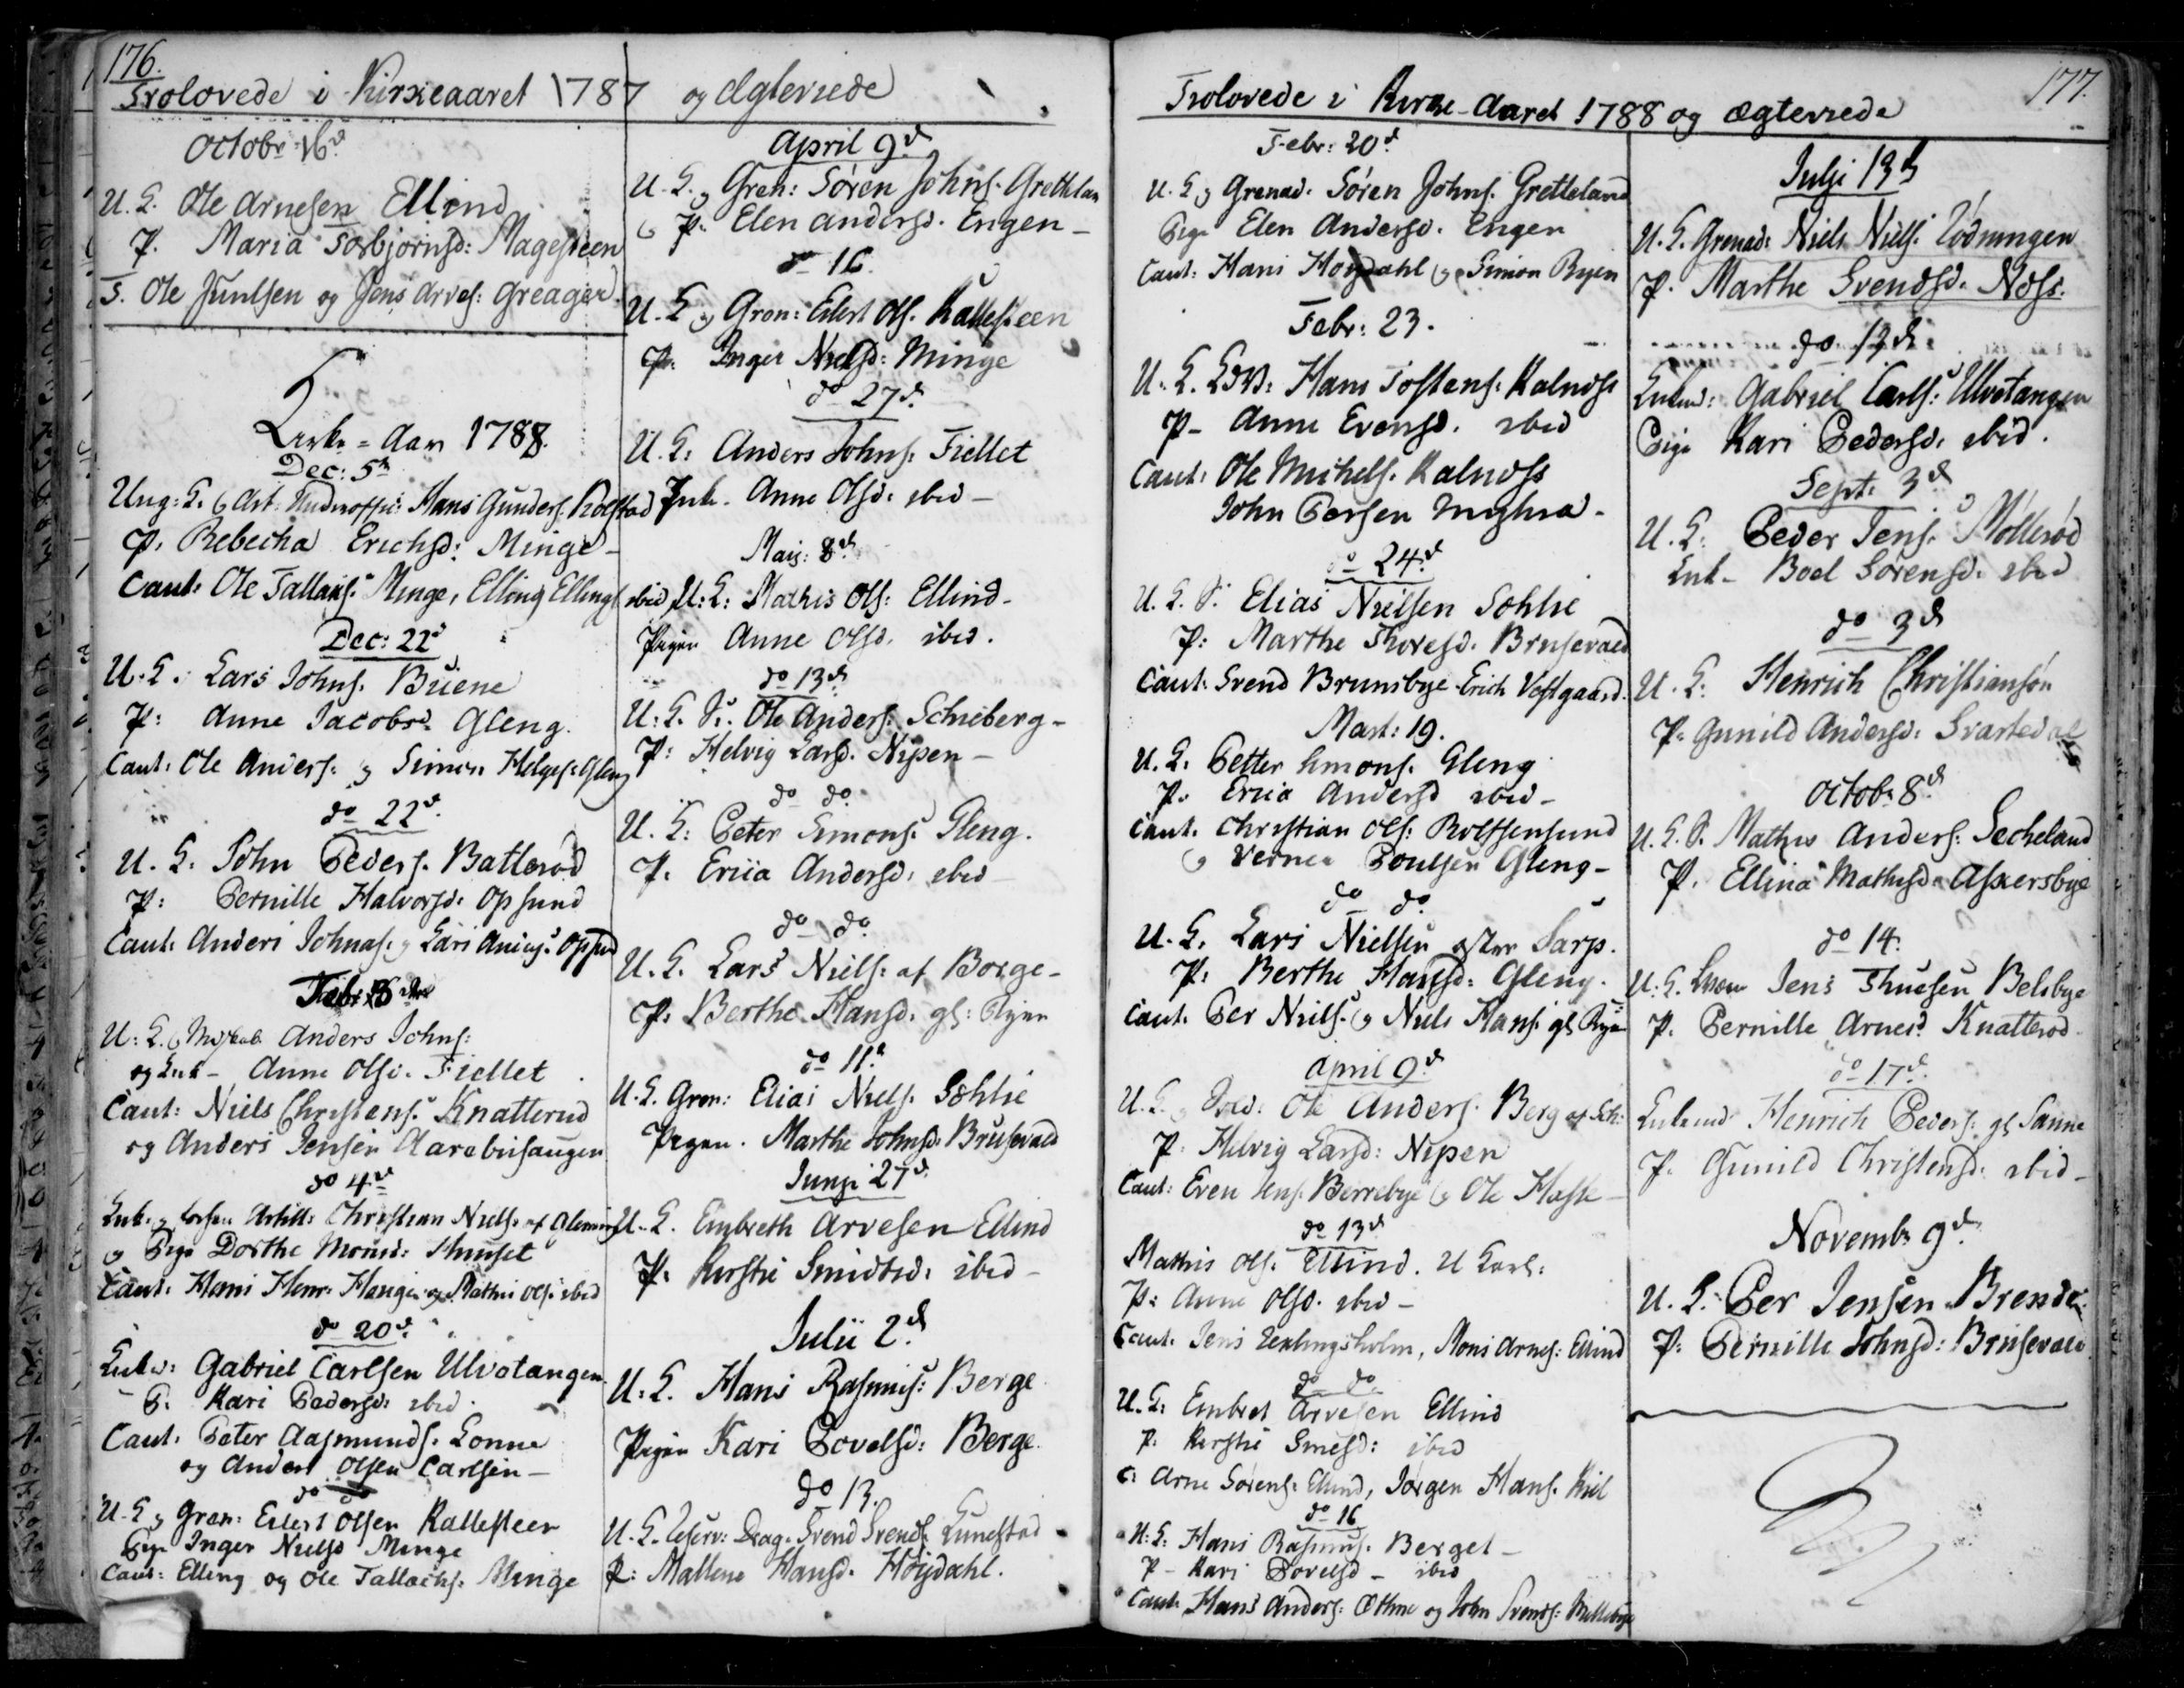 176.
Trolovede i Kirkeaaret 1787
Octobr 16d
U. K. Ole Arnesen Ellind
P. Maria Torbjørnsd: Hagesteen
F. Ole Juulsen og Jens Arves: Greager
Kirke-Aar 1788.
Dec: 5te
Ung: K. & Art. Underoffic: Hans Gunders. Rolstad
P. Rebecha Erichsd: Minge
Caut: Ole Tallaks: Minge, Elling Ellings ibid
Dec: 22d
U. K. Lars Johns. Buene
P: Anne Jacobsd. Gleng.
Caut: Ole Anders: og Simon Helges: Gleng
do 22d.
U. K. John Peders. Batterød
P: Pernille Halvorsd: Opsund
Caut. Anders Johns. og Lars Opsund
Febr: 16
U: K. Anders Johns:
og Enk- Anne Olsd. Fiellet
Caut: Niels Christens. Knatterud
og Anders Jensen
do 4de
Enk. og Artill: Christian Niels. af Glemminge
og Pige Dorthe Monsd: Thuset
Caut: Hans Henr: Hauge og Mathis Ols. ibid
do 20d.
Enkem: Gabriel Carlsen Ulvetangen
P. Kari Pedersd: ibid.
Caut. Peter Aasmunds. Lonne
og Anders Olsen Carlsen
do do
U. K. og Gren: Eilert Olsen Kallesteen
Pige Inger Nielsd Minge
Caut: Elling og Ole Tallachs. Minge
og Ægteviede
April 9d
U. K. og Gren: Søren Johns. Grethelan
& P: Elen Andersd. Engen
do 16.
U. K. og Gren: Eilert Ols. Kallesteen
P. Inger Nielsd: Minge
do 27d.
U. K: Anders Johns: Fiellet
Enk. Anne Olsd: ibid
Maij: 8d
U: K: Mathis Ols: Ellind
Pigen Anne Olsd. ibid.
do 13d
U: K. S. Ole Anders. Schieberg
P: Helvig Larsd. Nipen
do do.
U. K: Peter Simons: Gleng.
P. Ericia Andersd: ibid
do do.
U. K. Lars Niels: af Borge
P. Berthe Hansd. gl: Ryen
do 11te
U. K. Gren: Elias Niels. Sohlie
Pigen. Marthe Johnsd: Brusevald
Junii 27d.
U. K. Embreth Arvesen Ellind
P. Kirstie Smidtsd: ibid
Julii 2d
U: K. Hans Rasmus: Berge
Pigen Kari Povelsd: Berge
do 13.
U. K. reserv: Drag. Svend Svends. Lunestad
P: Mallene Hansd. Høydahl.
Trolovede i Kirke-Aaret 1788 og Ægteviede
177.
Febr: 20d.
U. K. og Grenad. Søren Johns. Gretteland
Pige Elen Andersd. Engen
Caut: Hans Høydahl & Simon Ryen
Febr: 23.
U. K. Hans Tostens: Kalnøss
P- Anne Evensd. ibid
Caut: Ole Michels. Kalnøss
John Persen
do 24d
U. K. S. Elias Nielsen Sohlie
P: Marthe Thoresd. Brusevald
Caut: Svend Brunsbye Erich Vestgaard.
Mart: 19.
U. K. Petter Simons. Gleng
P. Ericia Andersd ibid
Caut. Christian Ols: Rolfsensund
& Verner Poulsen Gleng
do do
U. K. Lars Nielsen Sarp.
P: Berthe Hansd: Gleng.
Caut. Per Niels: & Niels Hans. gl Ryen
April 9d
U. K. og Sold: Ole Anders. Berg af Sch:
P. Helvig Larsd: Nipen
Caut: Even Jens. Berrebye & Ole Hasle
do 13d
Mathis Ols. Ellind. U Karl:
P: Anne Olsd. ibid
Caut. Jens, Mons Arnes: Ellind
do do
U. K: Embret Arvesen Ellind
P. Kirstie Smidsd: ibid
C: Arne Sørens: Ellind, Jørgen Hans. Kiil
do 16
U: K: Hans Rasmus. Berget
P- Kari Povelsd - ibid
Caut. Hans Anders: Othne og John Svends:
Julii 13d
U. K. Grenad: Niels Niels: Lødningen
P. Marthe Svendsd. Næss.
do 13d
Enkem: Gabriel Carls: Ulvetangen
Pige Kari Pedersd: ibid.
Sept: 3d
U. K: Peder Jens. Møllerød
Enk- Boel Sørensd. ibid
do 3d
U. K: Henrich Christiansøn
P. Gunild Andersd: Svartedal
Octob: 8d
U. K. S. Mathis Anders: Secheland
P. Ellina Mathisd: Askersbye
do 14.
U: K. Jens Thuesen Belsbye
P. Pernille Arnesd. Knatterød
do 17d.
Enkemd Henrich Peders: gl Sanne
P. Gunild Christensd: ibid
Novemb: 9d
U. K: Per Jensen Brende
P: Pernille Johnsd: Brusevald